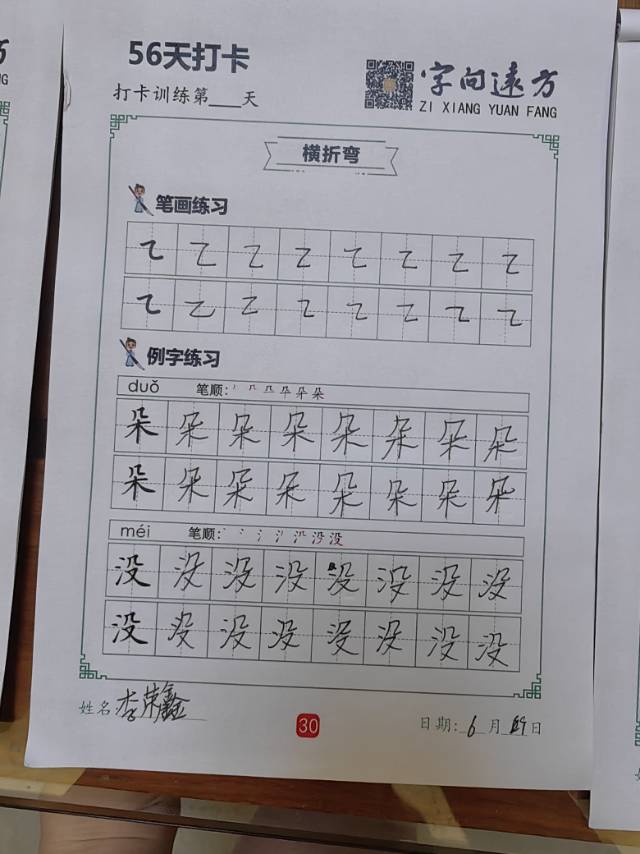 56天打卡
打卡训练第___天
字向远方
ZI XIANG YUAN FANG
横折弯
笔画练习
㇍ ㇍ ㇍ ㇍ ㇍ ㇍ ㇍ ㇍
㇍ ㇍ ㇍ ㇍ ㇍ ㇍ ㇍ ㇍
例字练习
duǒ 笔顺:
朵 朵 朵 朵 朵 朵 朵 朵
朵 朵 朵 朵 朵 朵 朵 朵
méi 笔顺:
没 没 没 没 没 没 没 没
没 没 没 没 没 没 没 没
姓名 李荣鑫
30
日期: 6 月 日